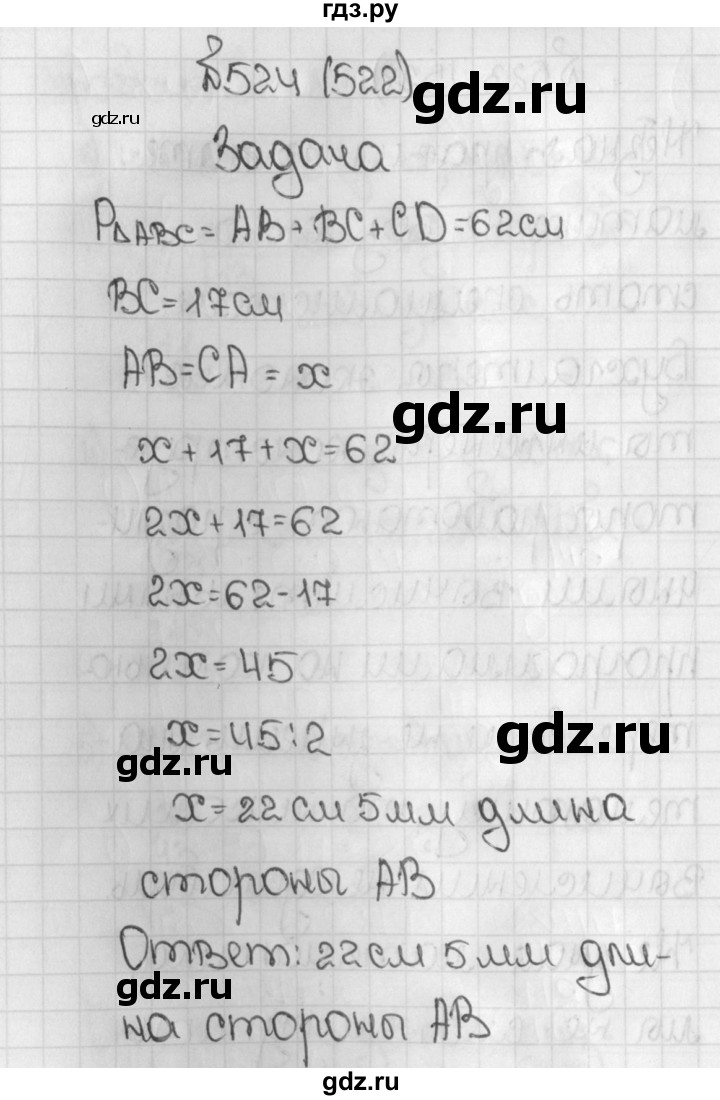 гдз.ру
№524 (522)
gdz.ru
gdz.ru
Задача
P△ABC = AB + BC + CD = 62см
BC = 17см
AB = CA = x
gdz.ru
x + 17 + x = 62
2x + 17 = 62
2x = 62 - 17
2x = 45
x = 45 : 2
gdz.ru
gdz.ru
x = 22 см 5 мм длина
стороны AB
Ответ: 22 см 5 мм дли-
gdz.ru
на стороны AB
gdz.ru